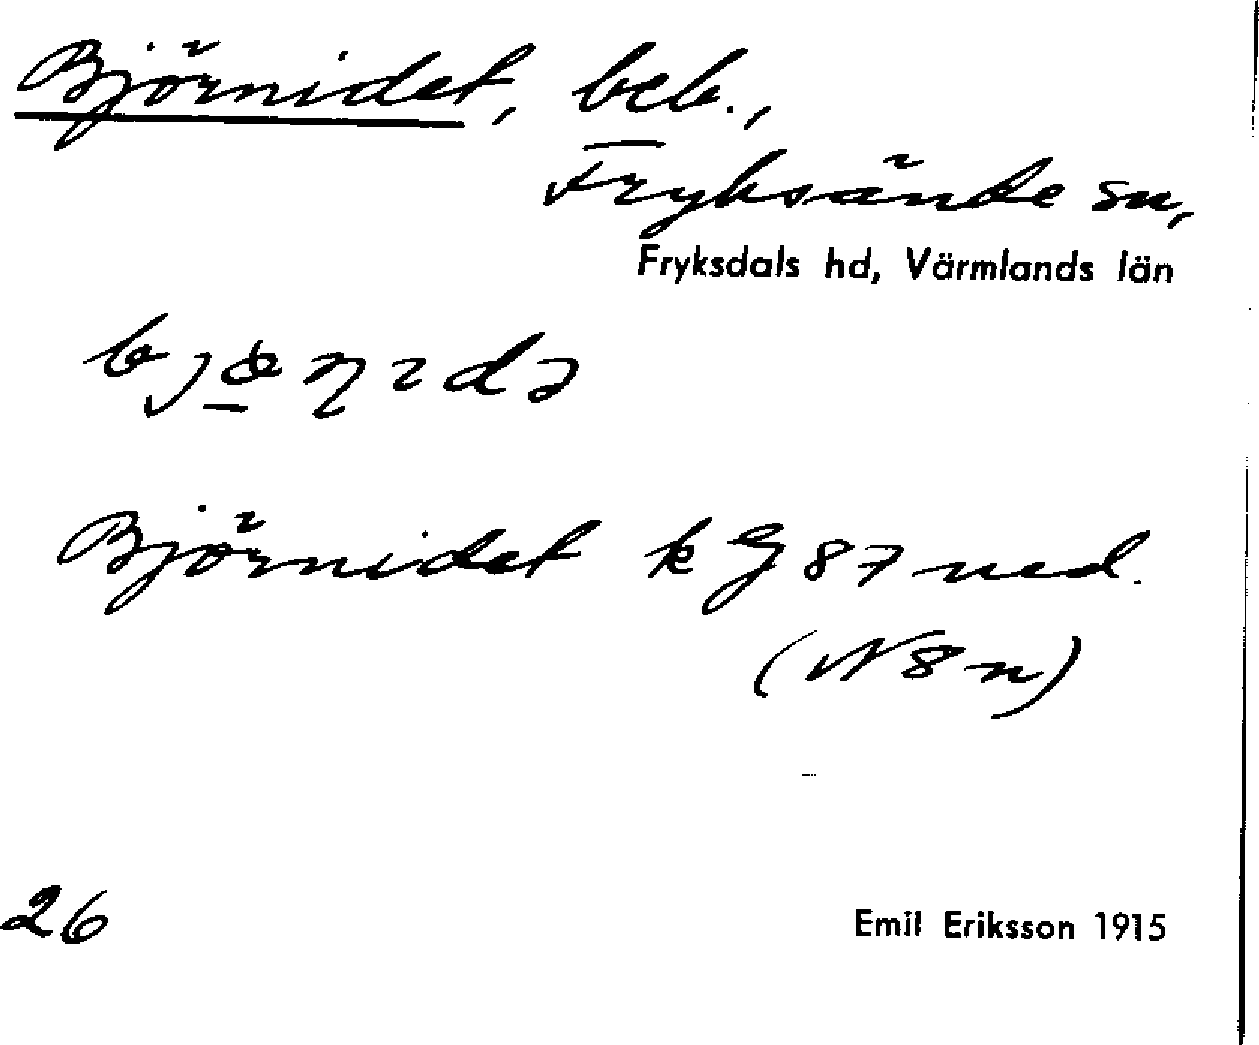 Björnidet, beb.,
Fryksände sn,
Fryksdals hd, Värmlands län
Björnidet k GJ 87 ned.
(N 8 n)
26
Emil Eriksson 1915